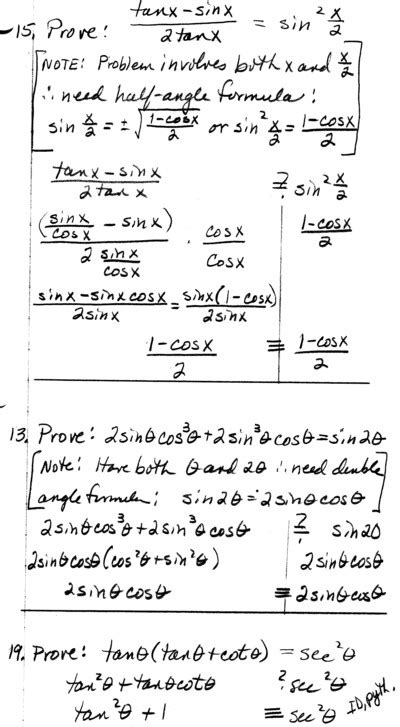 15. Prove: (tanx - sinx)/(2tanx) = sin² x/2
[NOTE: Problem involves both x and x/2
∴ need half-angle formula:
sin x/2 = ±√((1-cosx)/2) or sin² x/2 = (1-cosx)/2]
(tanx - sinx)/(2tanx) ≟ sin² x/2
((sinx/cosx) - sinx)/(2 sinx/cosx) · cosx/cosx (1-cosx)/2
(sinx - sinxcosx)/(2sinx) = (sinx(1-cosx))/(2sinx)
(1-cosx)/2 ≡ (1-cosx)/2
13. Prove: 2sinθcos³θ+2sin³θcosθ=sin2θ
[Note: Have both θ and 2θ ∴ need double
angle formula; sin2θ=2sinθcosθ]
2sinθcos³θ+2sin³θcosθ ≟ sin2θ
2sinθcosθ(cos²θ+sin²θ) 2sinθcosθ
2sinθcosθ ≡ 2sinθcosθ
19. Prove: tanθ(tanθ+cotθ) = sec²θ
tan²θ + tanθcotθ ? sec²θ
tan²θ + 1 ≡ sec²θ ID, Pyth.